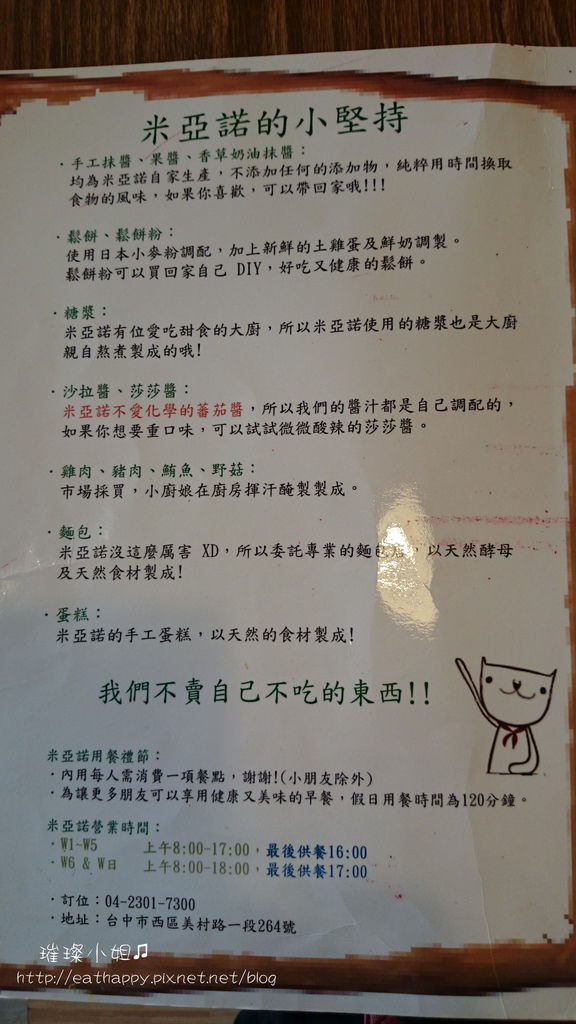 米亞諾的小堅持
·手工抹醬、果醬、香草奶油抹醬：
均為米亞諾自家生產，不添加任何的添加物，純粹用時間換取
食物的風味，如果你喜歡，可以帶回家哦!!!
·鬆餅、鬆餅粉：
使用日本小麥粉調配，加上新鮮的土雞蛋及鮮奶調製。
鬆餅粉可以買回家自己 DIY，好吃又健康的鬆餅。
·糖漿：
米亞諾有位愛吃甜食的大廚，所以米亞諾使用的糖漿也是大廚
親自熬煮製成的哦!
·沙拉醬、莎莎醬：
米亞諾不愛化學的蕃茄醬，所以我們的醬汁都是自己調配的，
如果你想要重口味，可以試試微微酸辣的莎莎醬。
·雞肉、豬肉、鮪魚、野菇：
市場採買，小廚娘在廚房揮汗醃製製成。
·麵包：
米亞諾沒這麼厲害 XD，所以委託專業的麵包，以天然酵母
及天然食材製成!
·蛋糕：
米亞諾的手工蛋糕，以天然的食材製成!
我們不賣自己不吃的東西!!
米亞諾用餐禮節：
·內用每人需消費一項餐點，謝謝!(小朋友除外)
·為讓更多朋友可以享用健康又美味的早餐，假日用餐時間為120分鐘。
米亞諾營業時間：
·W1~W5 上午8:00-17:00，最後供餐16:00
·W6 & W日 上午8:00-18:00，最後供餐17:00
·訂位：04-2301-7300
·地址：台中市西區美村路一段264號
璀璨小姐♫
http://eathappy.pixnet.net/blog